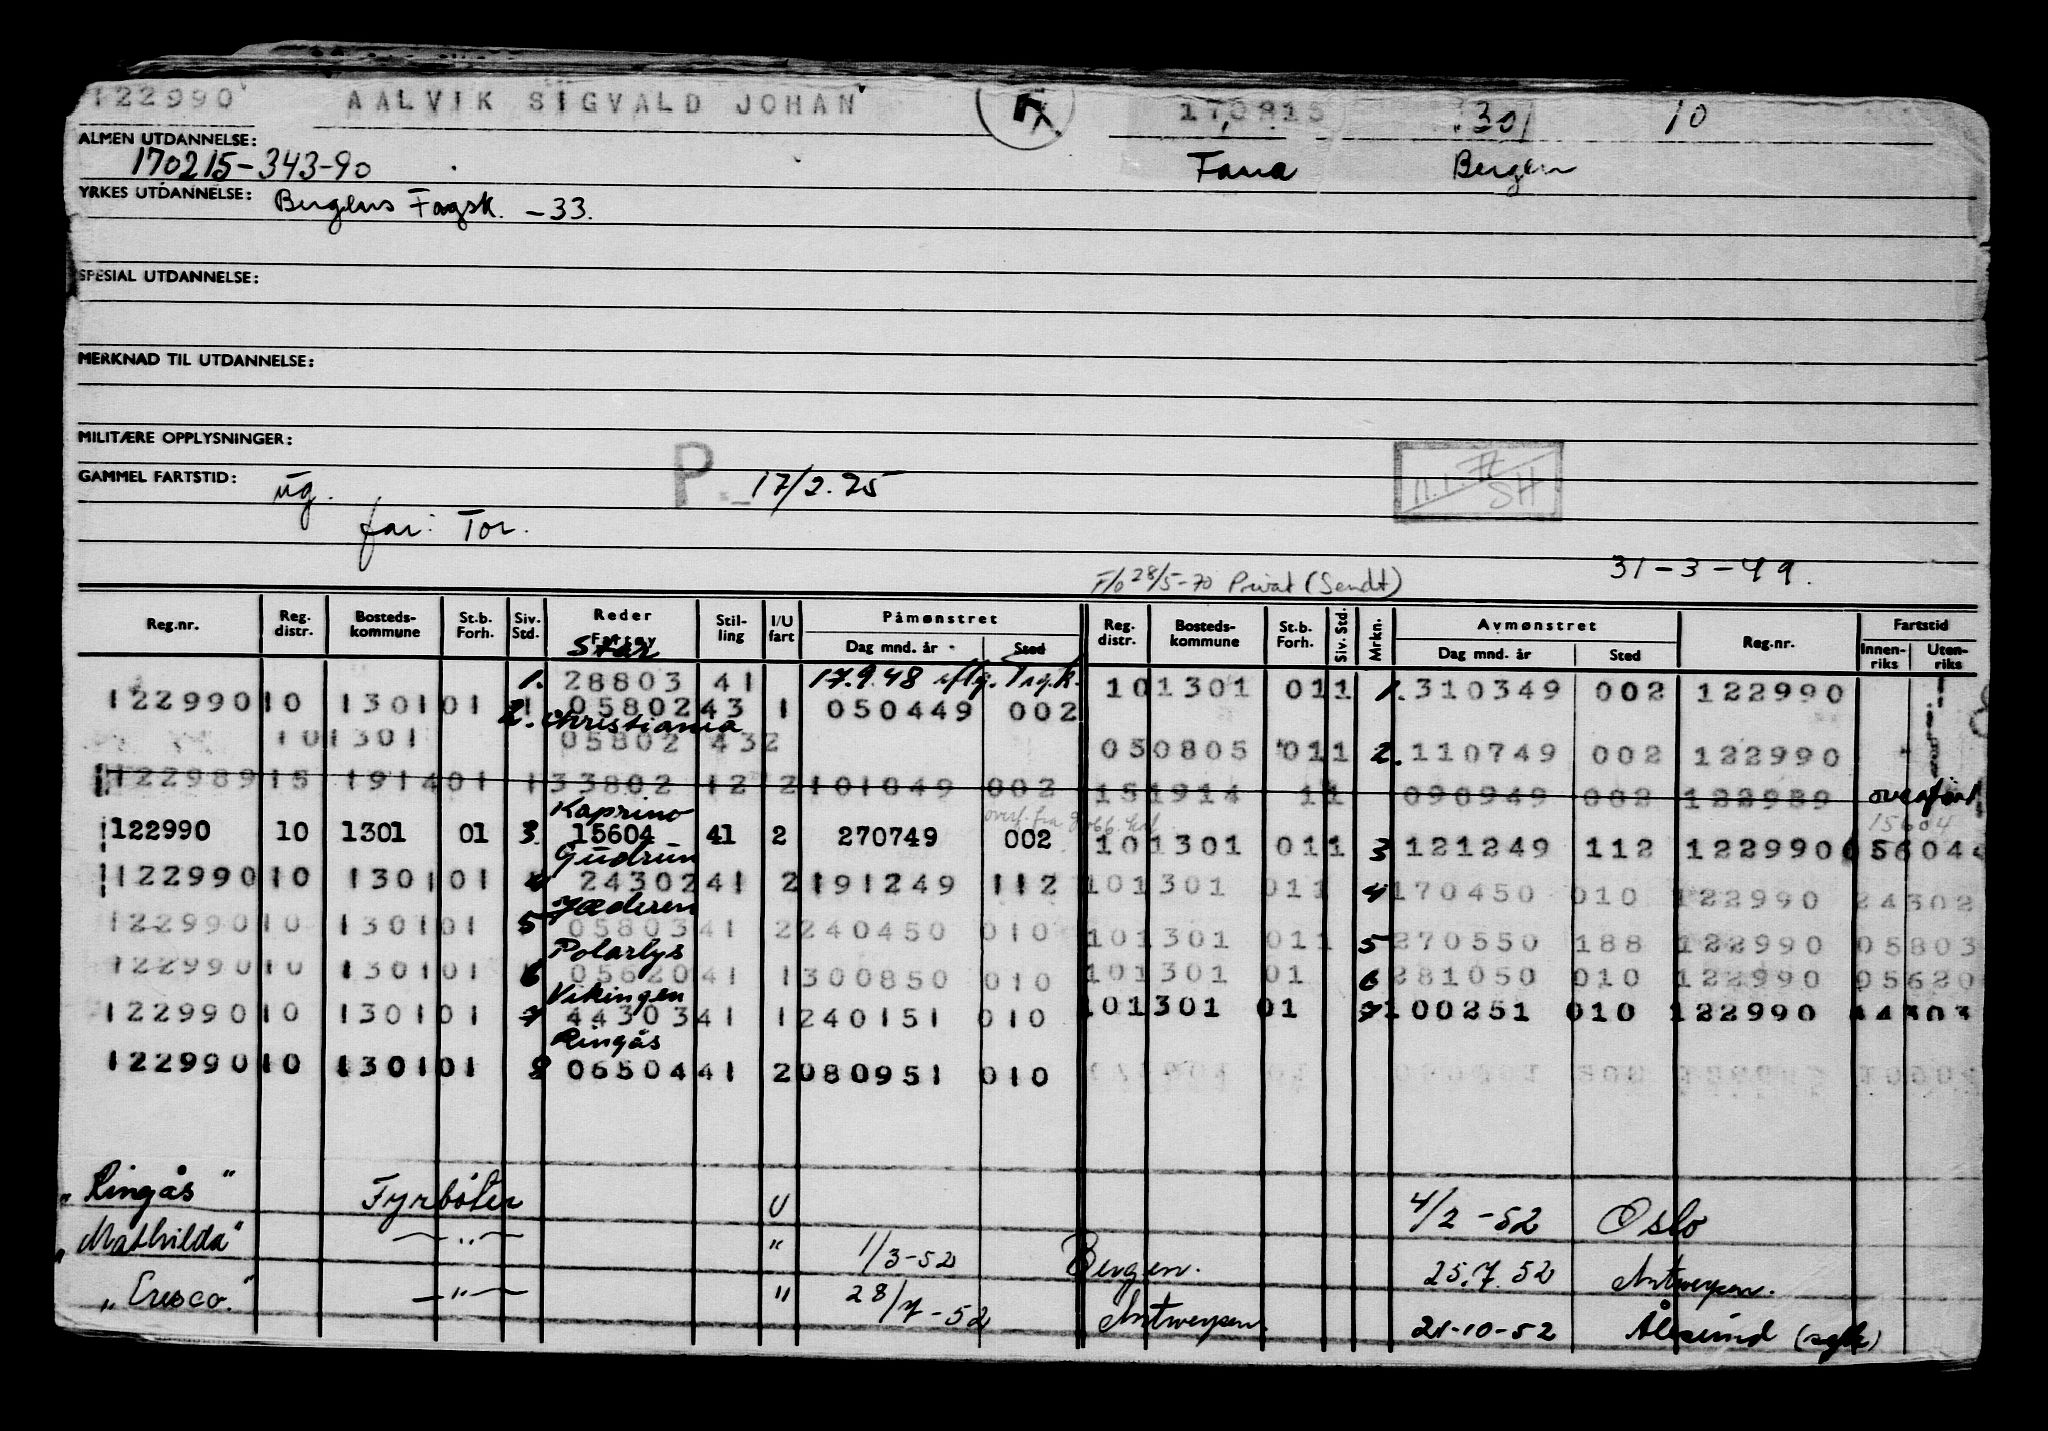 122990 AALVIK SIGVALD JOHAN 170215 .301 10
ALMEN UTDANNELSE:
170215-343-90 Fana Bergen
YRKES UTDANNELSE: Bergens Fagsk. -33.
SPESIAL UTDANNELSE:
MERKNAD TIL UTDANNELSE:
MILITÆRE OPPLYSNINGER:
GAMMEL FARTSTID: ug. P. 17/2.25 SH
far: Tor.
31-3-49.
F/o 28/5-70 Privat (Sendt)
Reg.nr. Reg. distr. Bosteds- kommune St.b. Forh. Siv. Std. Reder Stil- ling I/U fart Påmønstret Reg. distr. Bosteds- kommune St.b. Forh. Siv. Std. Mrkn. Avmønstret Reg.nr. Fartstid
Dag mnd. år Sted Dag mnd. år Sted Innen- riks Uten- riks
Star
1. 28803 41 17.9.48 101301 011 1. 310349 002 122990
122990 10 1301 01 1 05802 43 1 050449 002
2. Christiania
101301 05802 432 050805 011 2. 110749 002 122990
122989 15 1914 01 1 33802 12 2 101049 002 151914 11 090949 002 122989 overført
Kaprino 15604
122990 10 1301 01 3. 15604 41 2 270749 002 101301 011 3 121249 112 122990 15604
Gudrun
122990 10 1301 01 4 24302 41 2 191249 112 101301 011 4 170450 010 122990 24302
Jæderen
122990 10 1301 01 5 05803 41 2 240450 010 101301 011 5 270550 188 122990 05803
Polarlys
122990 10 1301 01 6 05620 41 1 300850 010 101301 01 6 281050 010 122990 05620
Vikingen
122990 10 1301 01 7 44303 41 1 240151 010 101301 01 7 100251 010 122990 44303
Ringås
122990 10 1301 01 8 06504 41 2 080951 010
"Ringås" Fyrbøter U 4/2-52 Oslo
"Mathilda" —"— " 1/3-52 Bergen. 25.7.52 Antwerpen.
"Cresco." —"— " 28/7-52 Antwerpen. 21-10-52 Ålesund